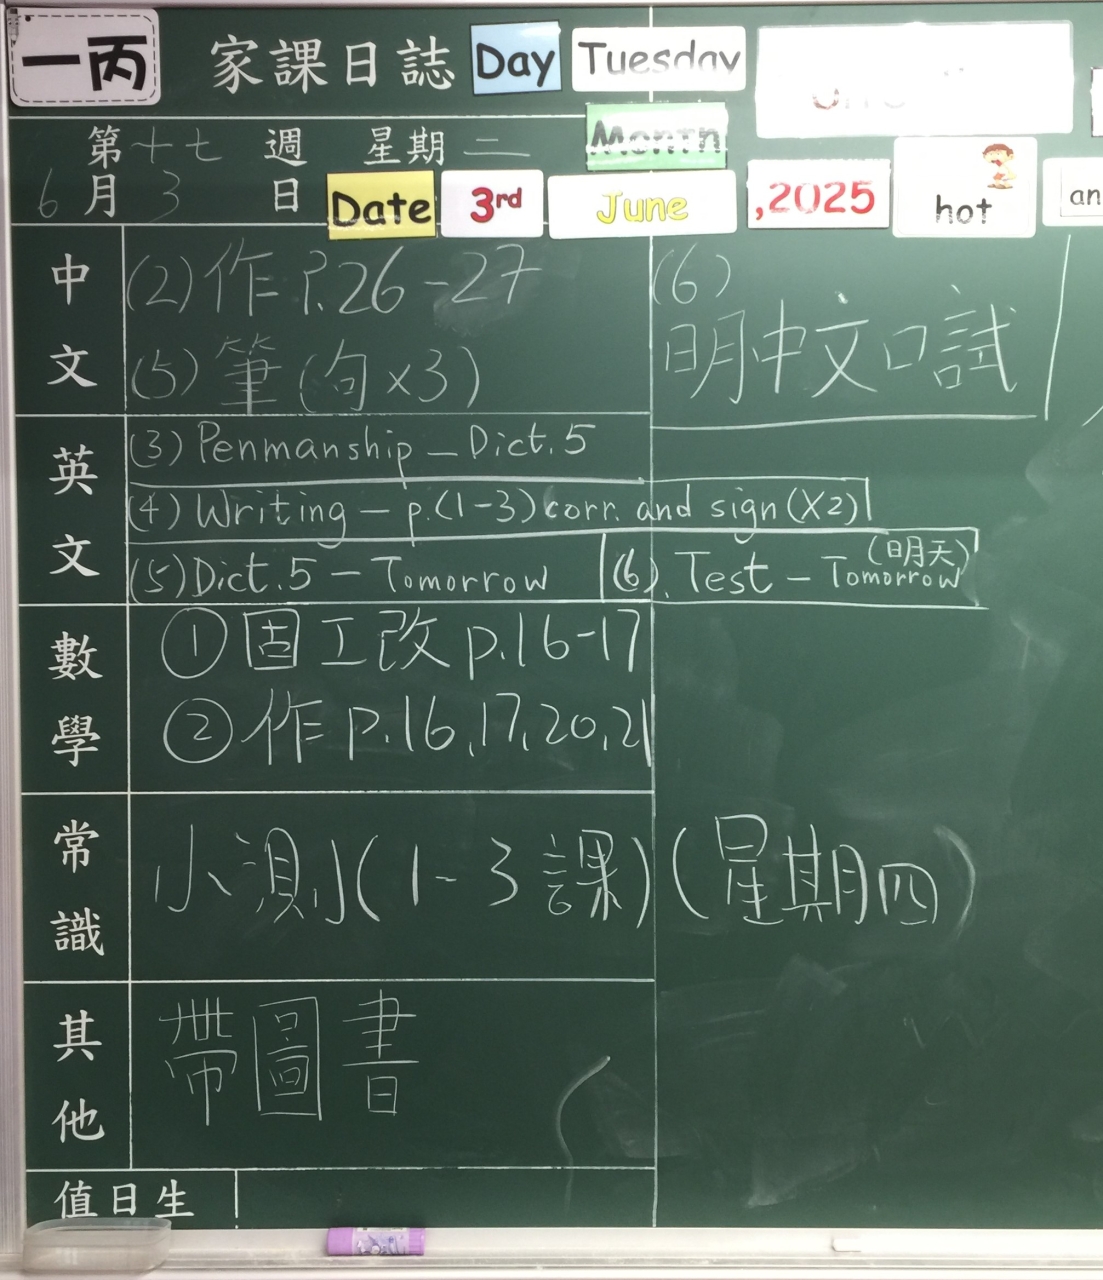 一丙 家課日誌 Day Tuesday
第十七週 星期二 Month
6月3日 Date 3rd June ,2025 hot an
中文
(2) 作 P.26-27
(5) 筆(句x3)
(6)
明中文口試
英文
(3) Penmanship – Dict.5
(4) Writing – p.(1-3) corr. and sign (X2)
(5) Dict.5 – Tomorrow (6). Test – Tomorrow (明天)
數學
① 固工改 p.16-17
② 作 p.16,17,20,21
常識
小測(1-3課)(星期四)
其他
帶圖書
值日生